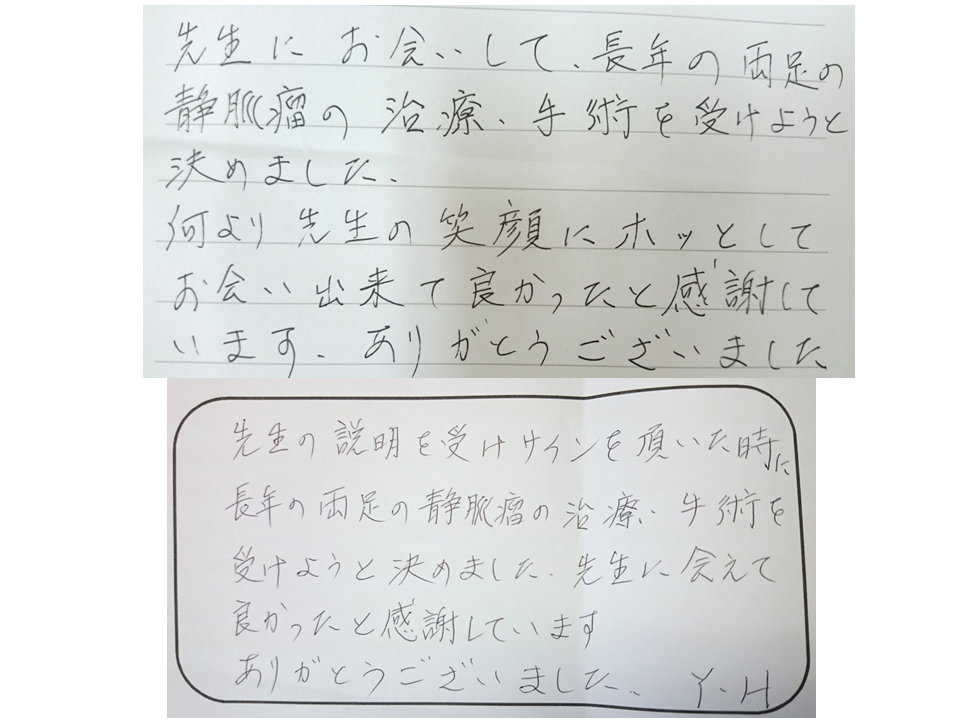 先生に お会いして、長年の両足の
静脈瘤の治療、手術を受けようと
決めました、
何より先生の笑顔にホッとして
お会い出来て良かったと感謝して
います、ありがとうございました
先生の説明を受けサインを頂いた時に
長年の両足の静脈瘤の治療、手術を
受けようと決めました、先生に会えて
良かったと感謝しています
ありがとうございました、 Y・H